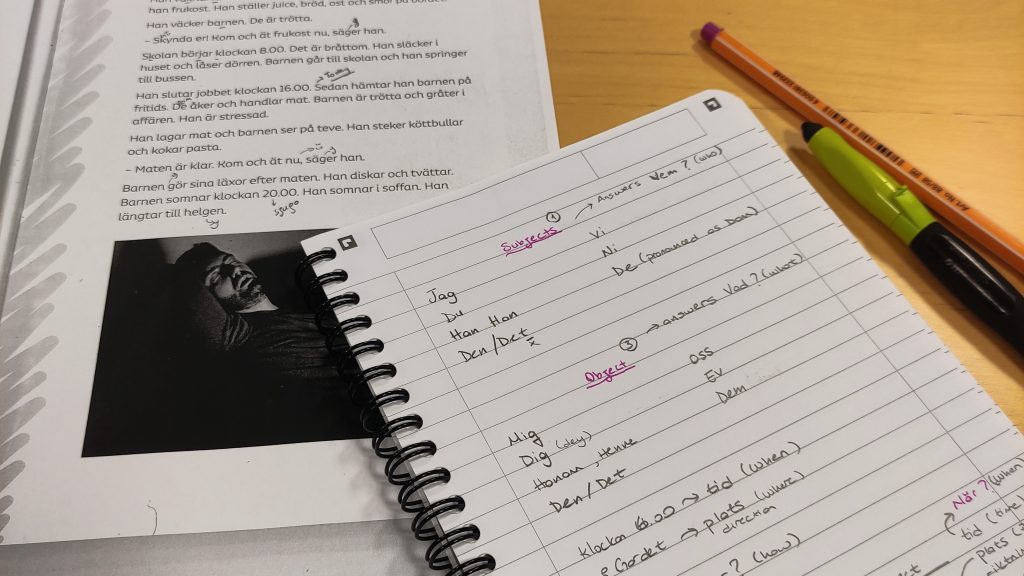 han frukost. Han ställer juice, bröd, ost och smör på bordet.
Han väcker barnen. De är trötta.
– Skynda er! Kom och ät frukost nu, säger han.
Skolan börjar klockan 8.00. Det är bråttom. Han släcker i
huset och låser dörren. Barnen går till skolan och han springer
till bussen.
Today
Han slutar jobbet klockan 16.00. Sedan hämtar han barnen på
fritids. De åker och handlar mat. Barnen är trötta och gråter i
affären. Han är stressad.
Han lagar mat och barnen ser på teve. Han steker köttbullar
och kokar pasta.
– Maten är klar. Kom och ät nu, säger han.
Barnen gör sina läxor efter maten. Han diskar och tvättar.
Barnen somnar klockan 20.00. Han somnar i soffan. Han
längtar till helgen.
① Subjects → Answers Vem? (who)
Jag Vi
Du Ni
Han Hon De (pronounced as Dom)
Den/Det
③ Object → answers Vad? (what)
Mig oss
Dig (dey) Ev
Honom, Henne Dem
Den/Det
klockan 6.00 → tid (when)
→ plats (where)
direction
? (how)
När? (when)
tid (time
plats (